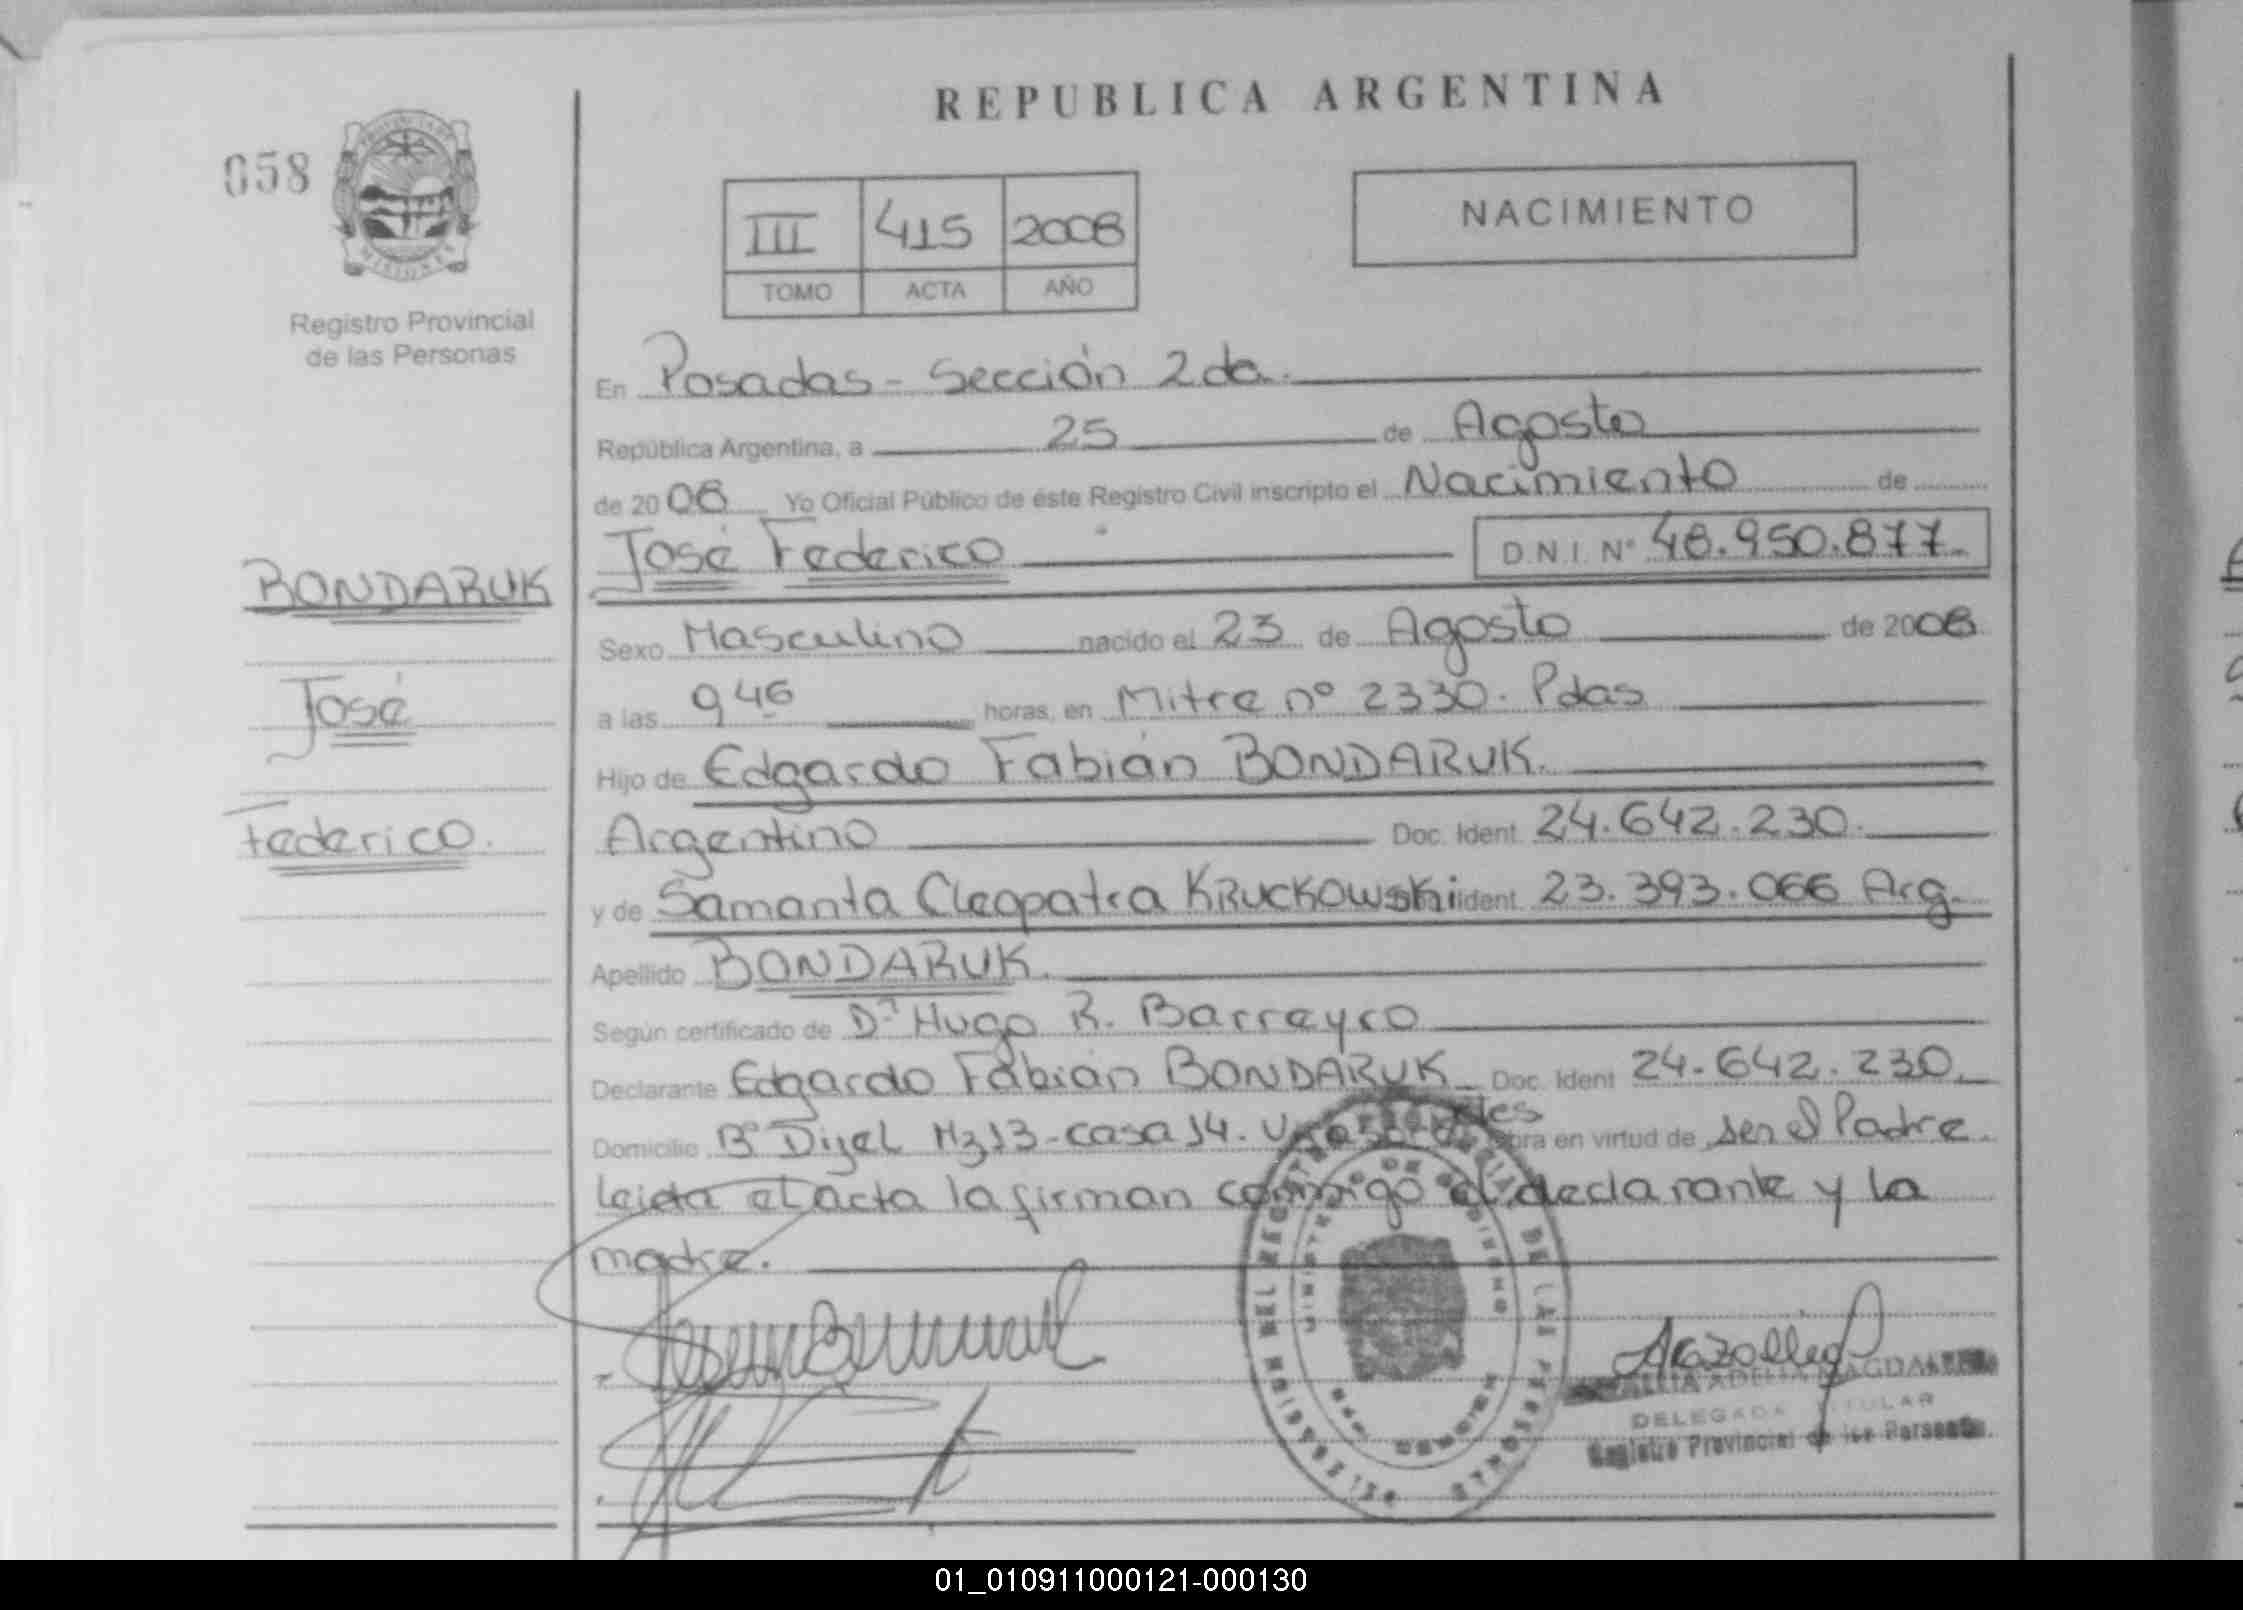 REPUBLICA ARGENTINA
058
PROVINCIA DE
MISIONES
Registro Provincial
de las Personas
III 415 2008
TOMO ACTA AÑO
NACIMIENTO
En Posadas - Sección 2da.
República Argentina, a 25 de Agosto
de 2008 Yo Oficial Público de éste Registro Civil inscripto el Nacimiento de
José Federico D.N.I. Nº 48.950.877.
BONDARUK
Sexo Masculino nacido el 23 de Agosto de 2008
José
a las 9 46 horas, en Mitre nº 2330. Pdas
Hijo de Edgardo Fabián BONDARUK.
Federico.
Argentino Doc. Ident. 24.642.230.
y de Samanta Cleopatra KRUCKOWSKi Ident. 23.393.066 Arg.
Apellido BONDARUK.
Según certificado de Dr Hugo R. Barreyro
Declarante Edgardo Fabián BONDARUK Doc. Ident 24.642.230.
Domicilio Bº Dizel Mz13-casa 14. obra en virtud de ser el Padre.
leida el acta la firman conmigo el declarante y la
madre.
DEL REGISTRO DE LAS PERSONAS
MINISTERIO DE GOBIERNO
MISIONES
ADELIA MAGDALENA
DELEGADA TITULAR
Registro Provincial de las Personas.
01_010911000121-000130